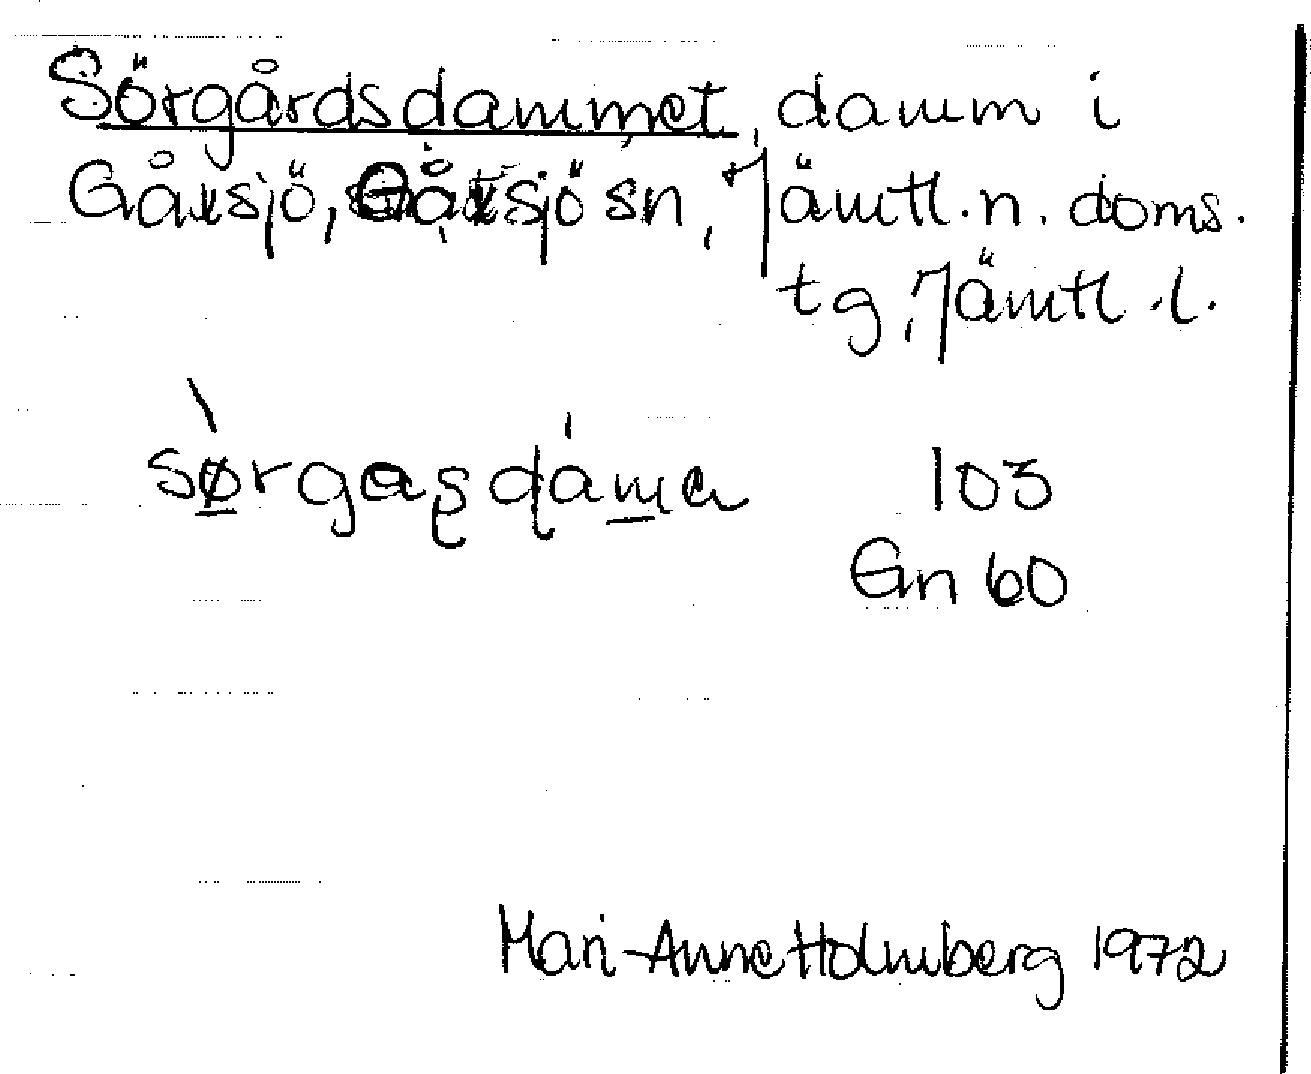 Sörgårdsdammet, damm i
Gåxsjö, Gåxsjö sn, Jämtl. n. doms.
tg, Jämtl. l.
103
Gn 60
Mari-Anne Holmberg 1972